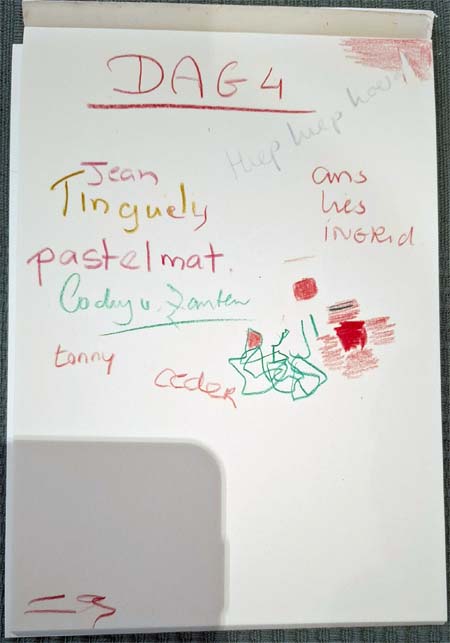 DAG 4
Hiep hiep hoera
Jean
Tinguely
pastelmat.
Codey v. Zanten
tonny
ceder
ans
lies
INGRid